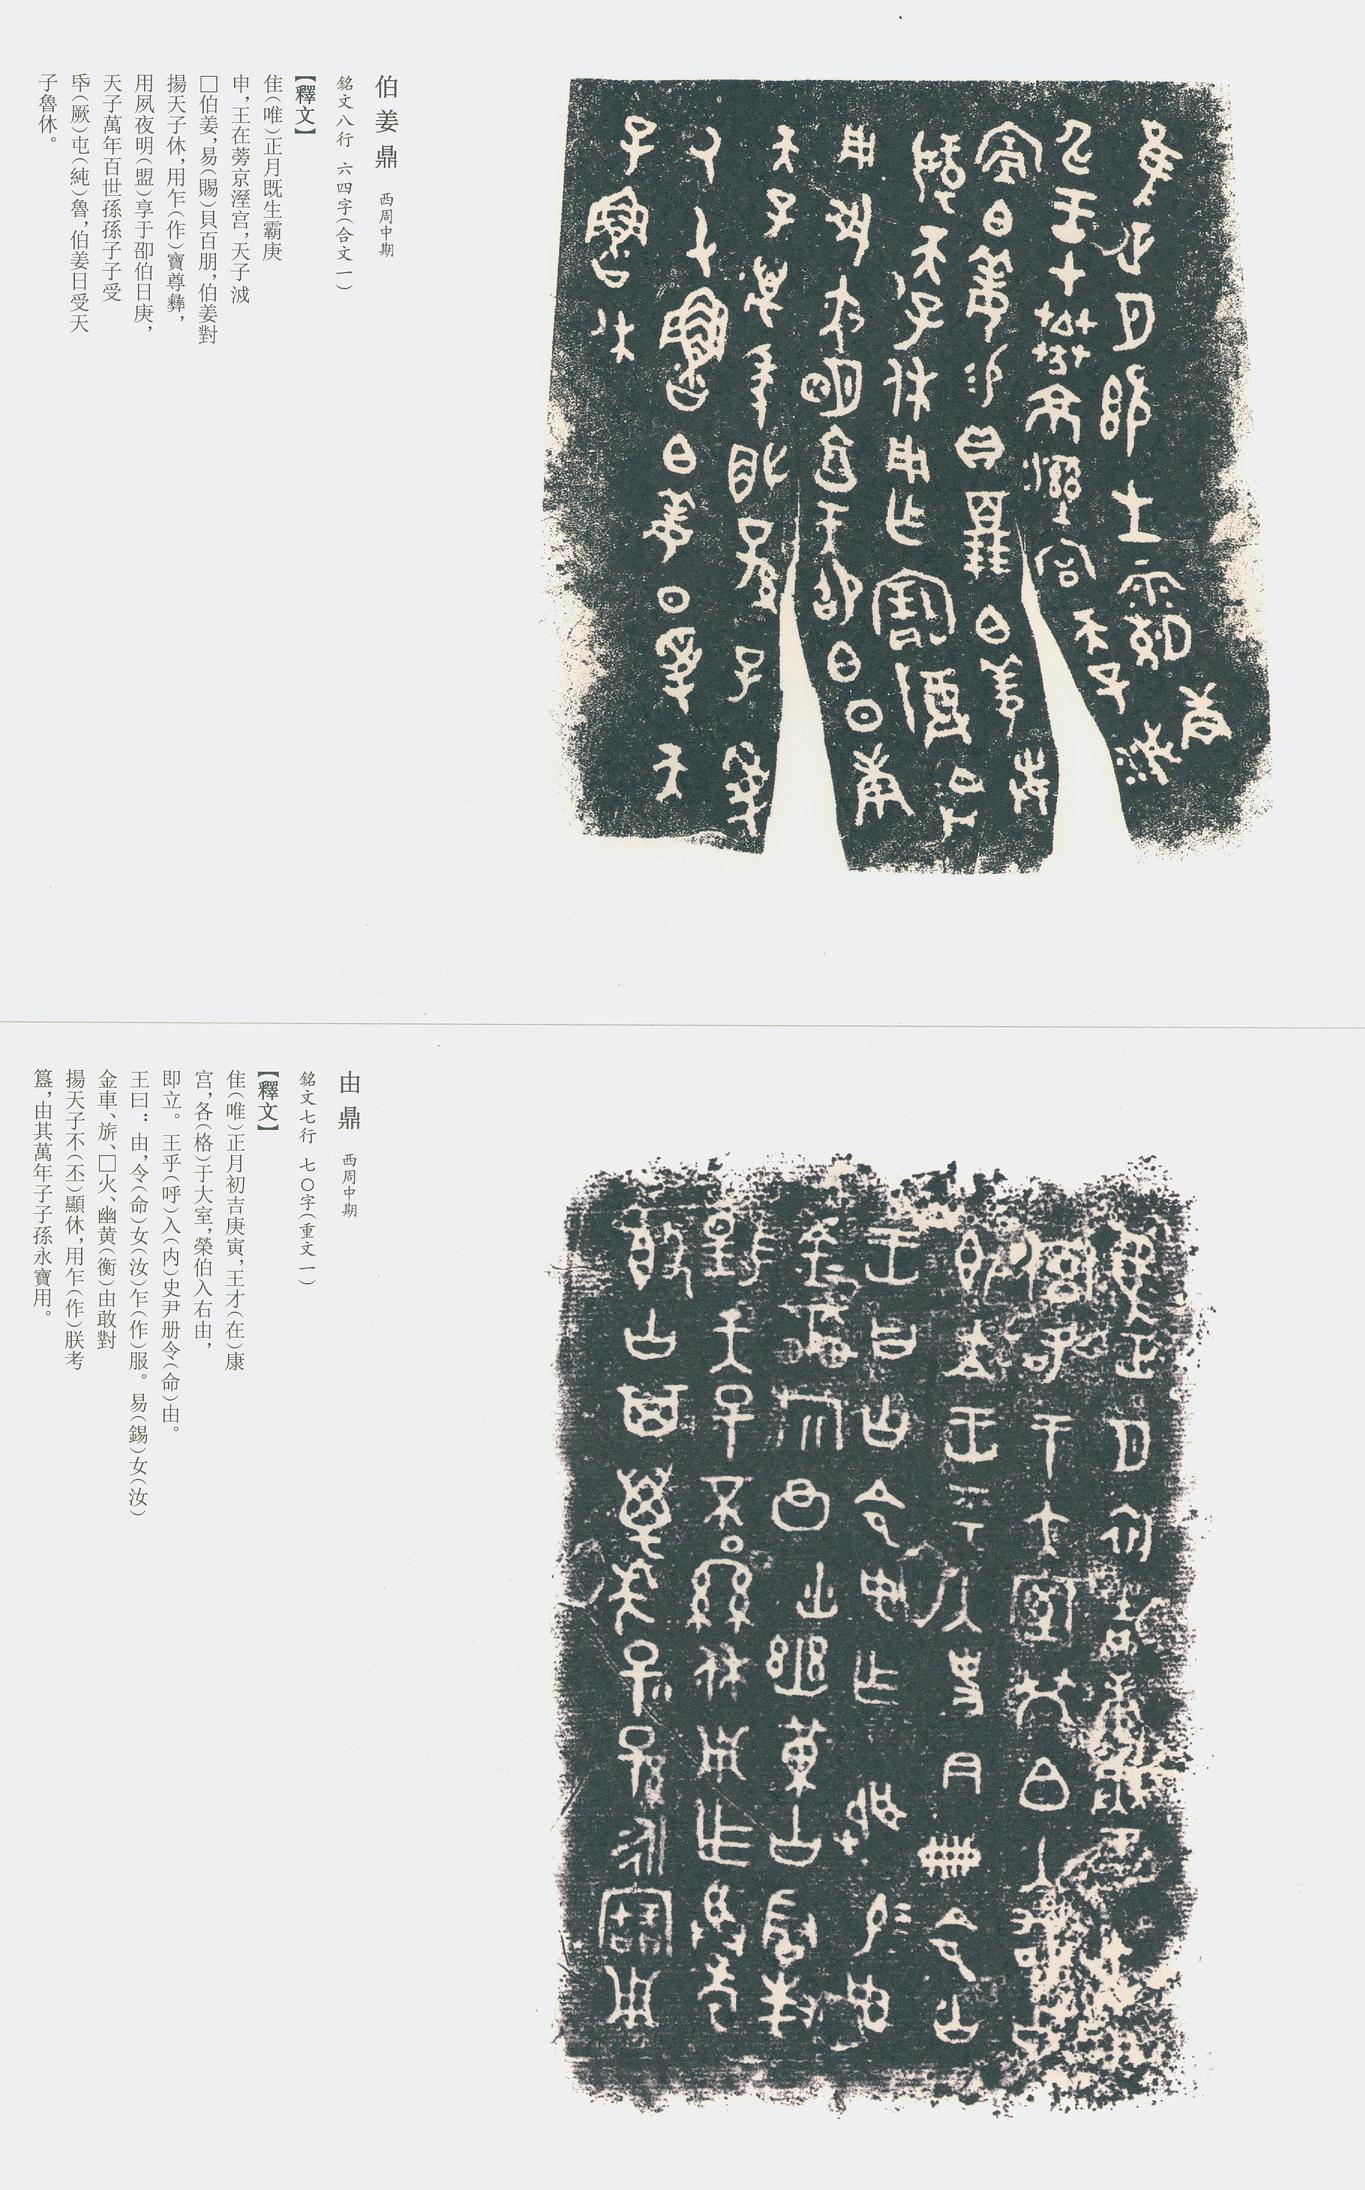 伯姜鼎 西周中期
銘文八行 六四字（合文一）
【釋文】
隹（唯）正月既生霸庚
申，王在蒡京溼宫，天子淢
□伯姜，易（賜）貝百朋，伯姜對
揚天子休，用乍（作）寶尊彝，
用夙夜明（盟）享于卲伯日庚，
天子萬年百世孫孫子子受
氒（厥）屯（純）魯，伯姜日受天
子魯休。
由鼎 西周中期
銘文七行 七〇字（重文一）
【釋文】
隹（唯）正月初吉庚寅，王才（在）康
宫，各（格）于大室，榮伯入右由，
即立。王乎（呼）入（内）史尹册令（命）由。
王曰：由，令（命）女（汝）乍（作）服。易（錫）女（汝）
金車、旂、□火、幽黄（衡）由敢對
揚天子不（丕）顯休，用乍（作）朕考
簋，由其萬年子子孫永寶用。